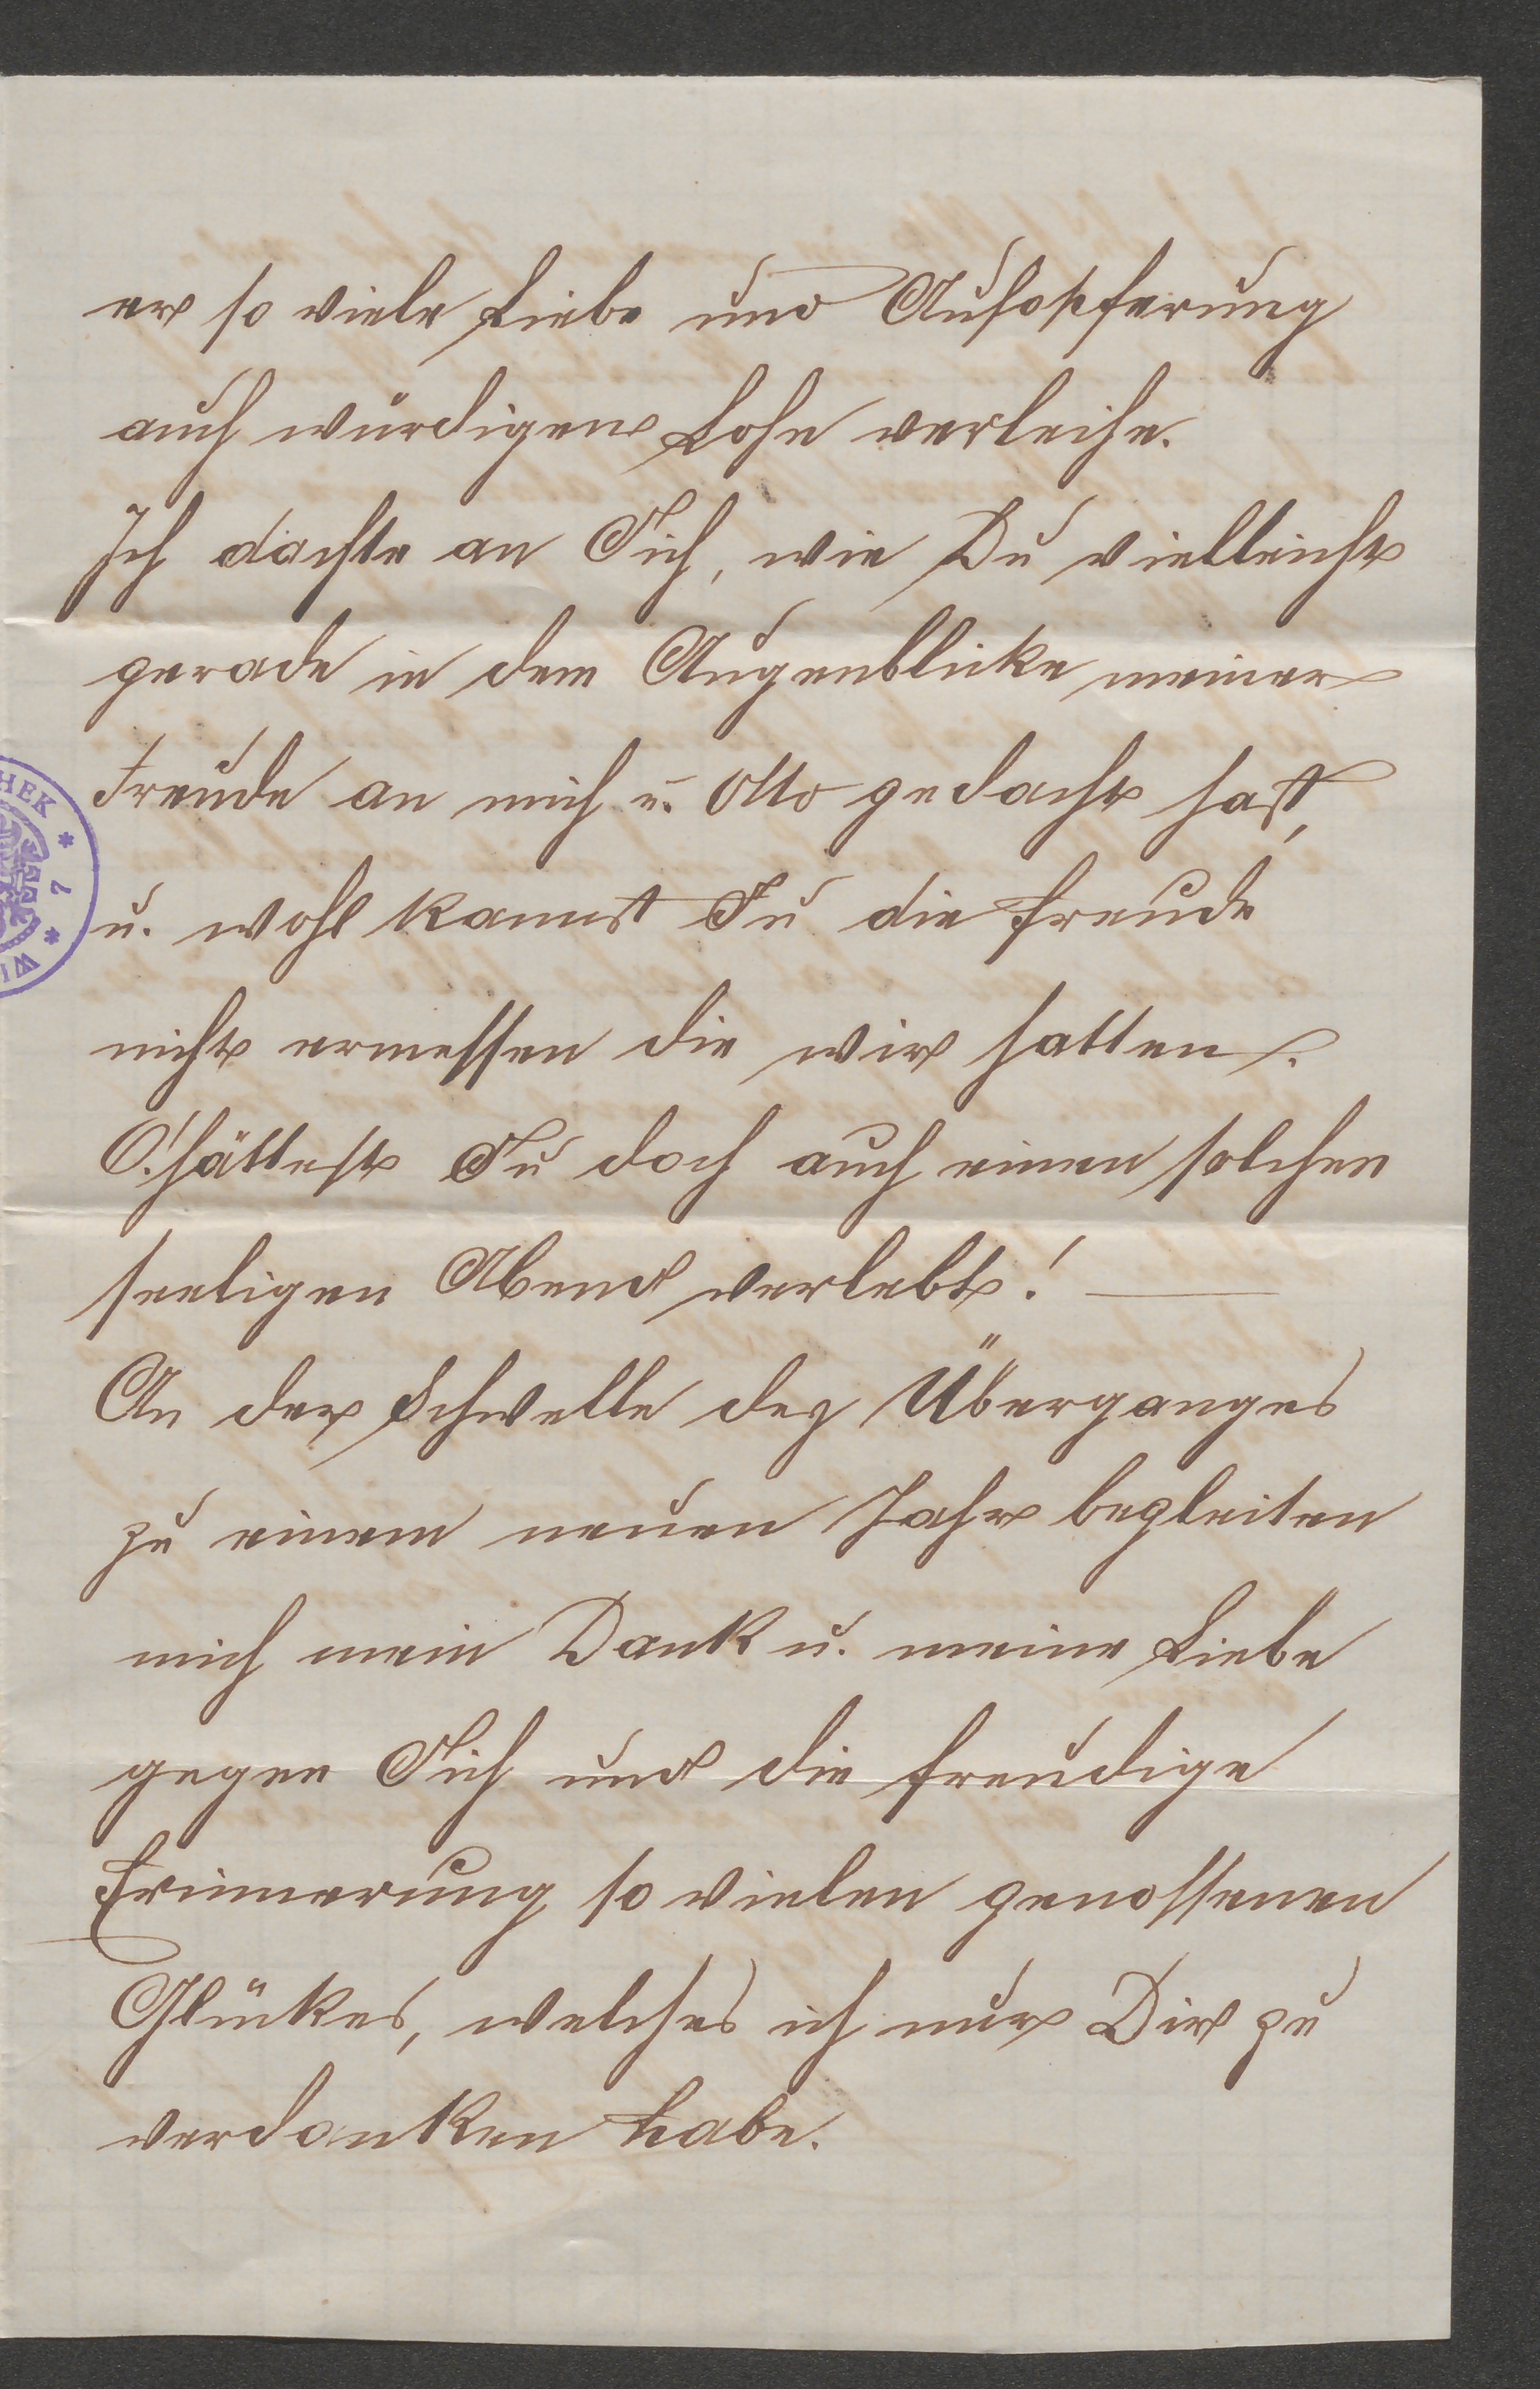 er so viele Liebe und Aufopferung
auch würdigen Lohn verleihe.
Ich dachte an Dich, wie Du vielleicht
gerade in dem Augenblicke meiner
Freude an mich u. Otto gedacht hast,
u. wohl kannst Du die Freude
nicht ermessen die wir hatten.
O! hättest Du doch auch einen solchen
seeligen Abend verlebt! —
An der Schwelle des Überganges
zu einem neuen Jahr begleiten
mich mein Dank u. meine Liebe
gegen Dich und die freudige
Erinnerung so vielen genossenen
Glückes, welches ich nur Dir zu
verdanken habe.
HEK * 7 * WI